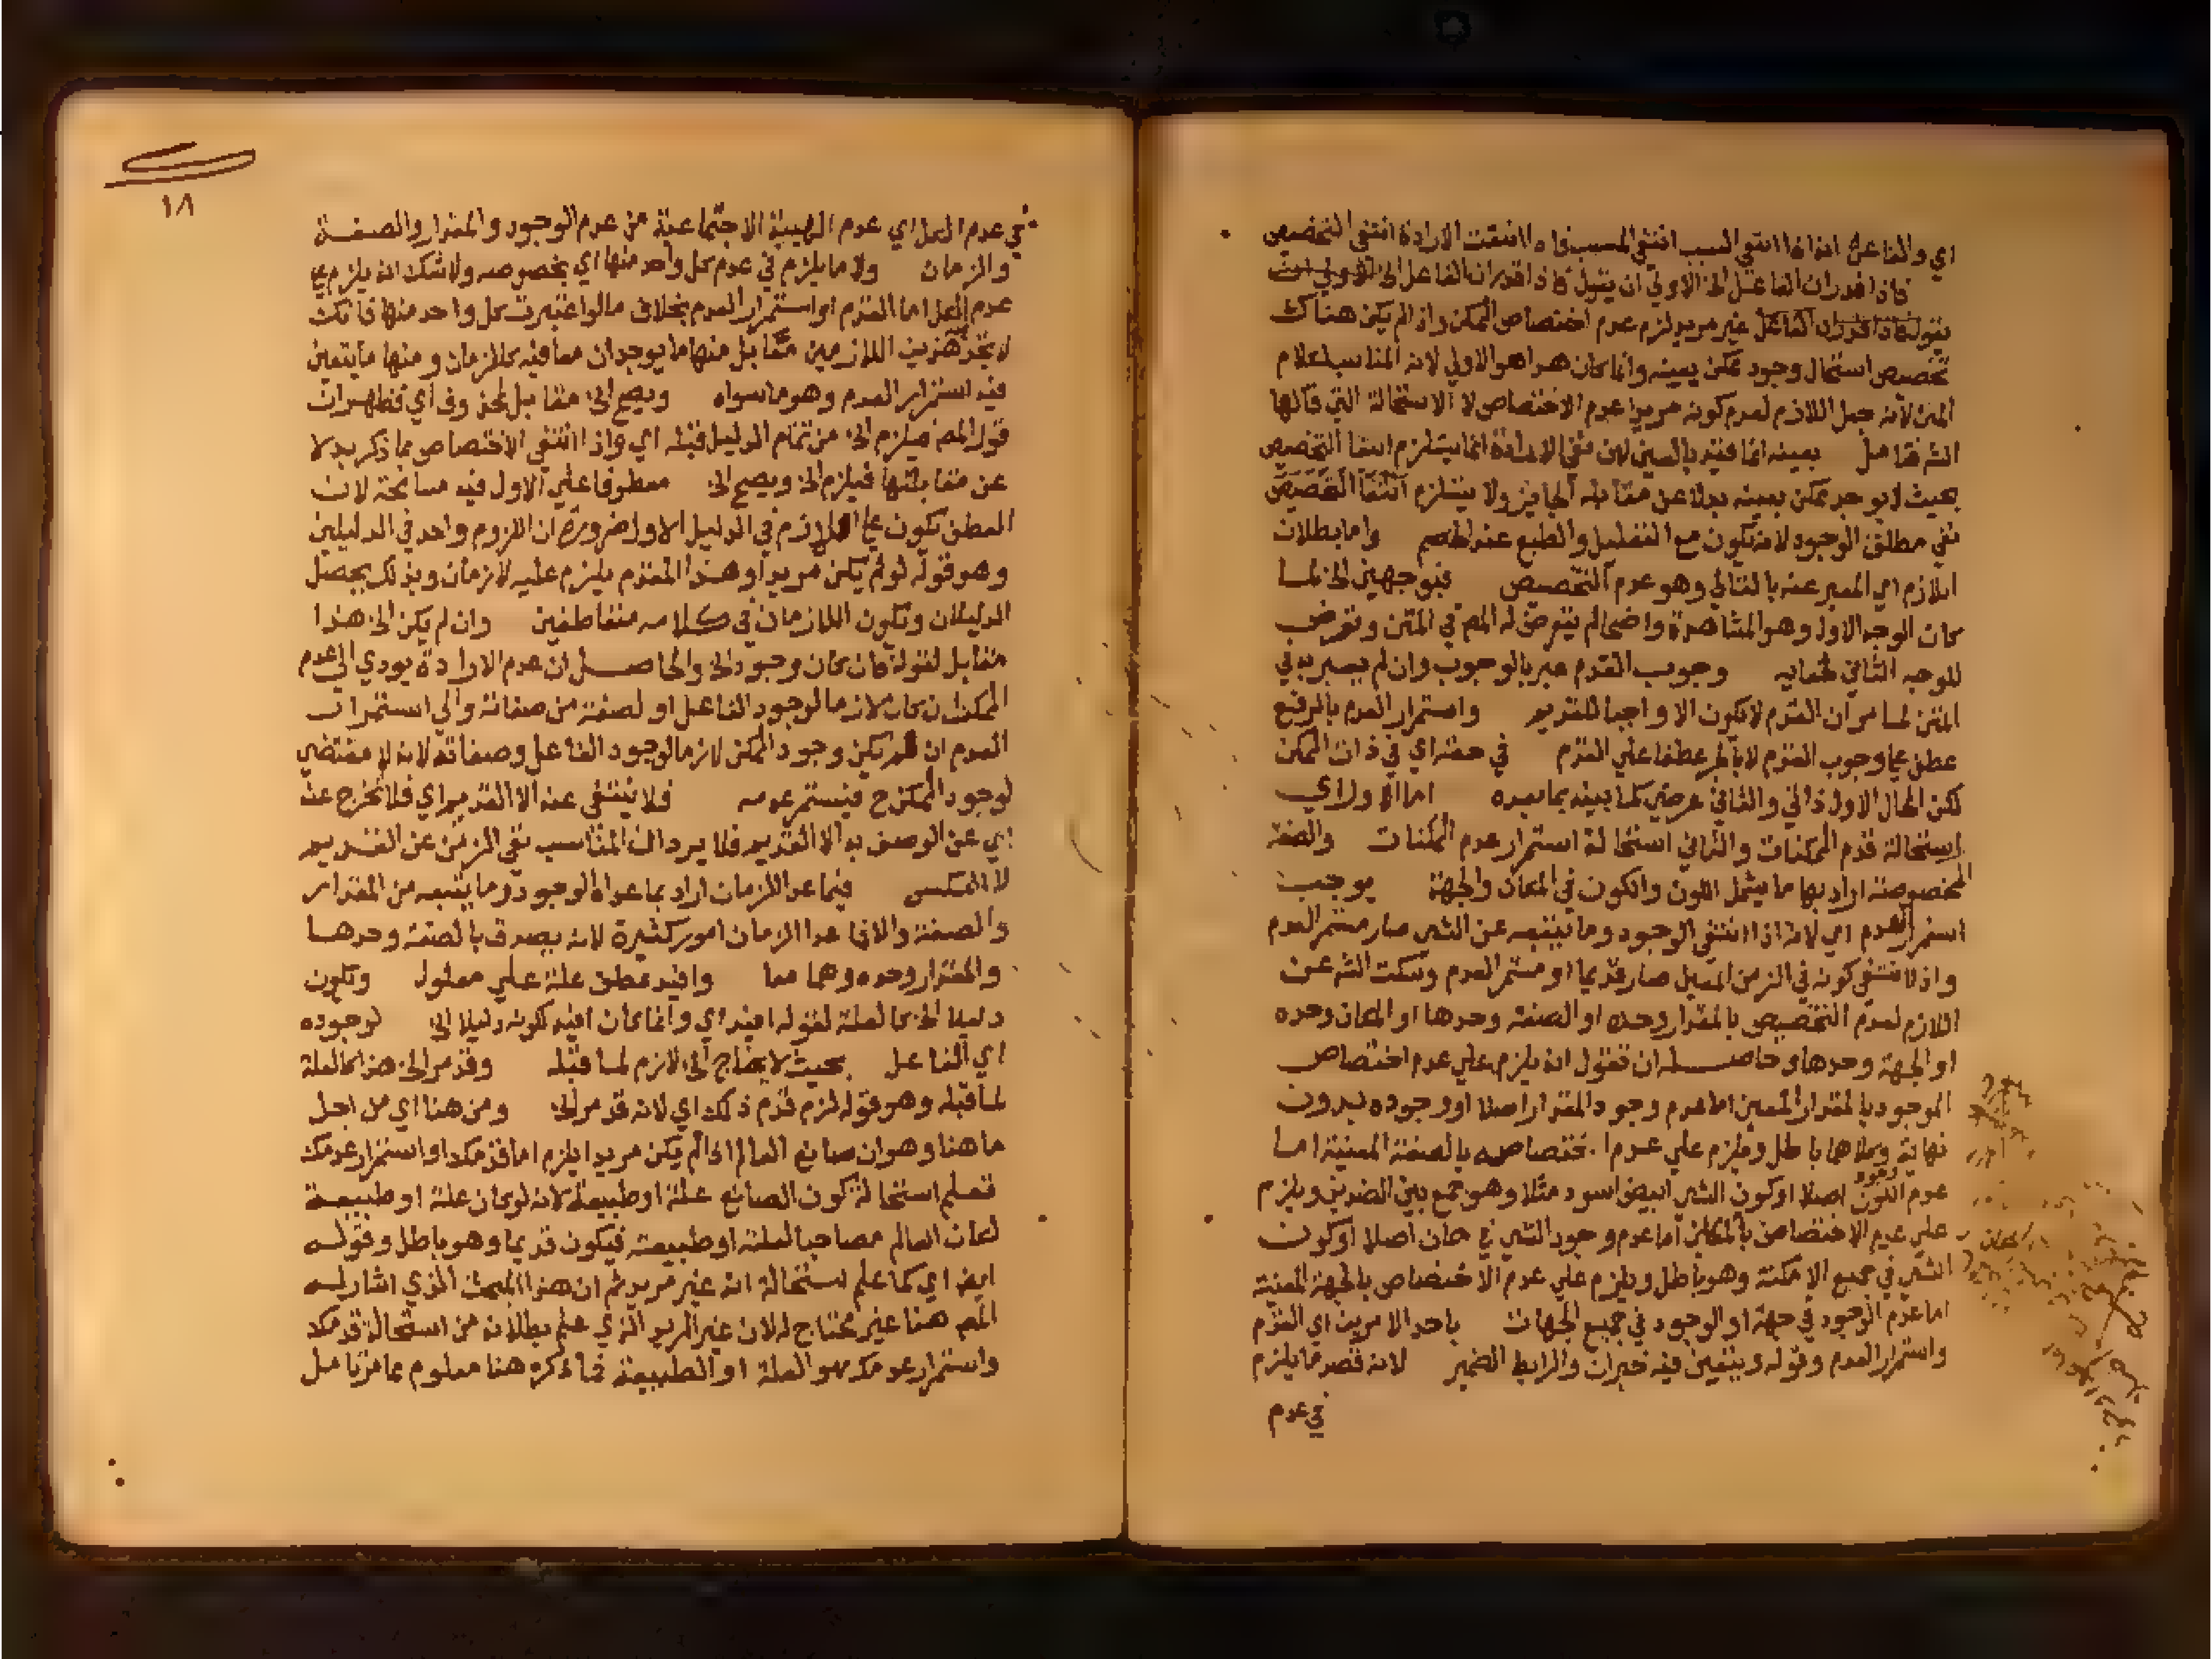 اي والفاعل انه اذا انتفي السبب انتفي المسبب فاذا انتفت الارادة انتفي التخصيص
فاذا قدر ان الفاعل الخ الاولي ان يقول فاذا قدر ان الفاعل الخ الاولي ان
يقول فاذا قدر ان الفاعل غير مريد لزم عدم اختصاص الممكن واذا لم يكن هناك
تخصيص استحال وجود ممكن بعينه وانما كان هذا هو الاولي لانه المناسب لكلام
المتن لانه جعل اللازم لعدم كونه مريدا عدم الاختصاص لا الاستحالة التي قالها
الش فتامل بعينه انما قيد بالعين لان نفي الارادة انما يستلزم انتفا التخصيص
بحيث يوجد ممكن بعينه بدلا عن مقابله الجايز ولا يستلزم انتفا التخصيص
نفي مطلق الوجود لانه يكون مع التعليل والطبع عند الخصم واما بطلان
اللازم اي المعبر عنه بالتالي وهو عدم التخصيص فبوجهين الخ لما
كان الوجه الاول وهو المشاهدة واضحا لم يتعرض له المص في المتن وتعرض
للوجه الثاني لخفايه وجوب القدم عبر بالوجوب وان لم يعبر به في
المتن لما مر ان القدم لا يكون الا واجبا للقديم واستمرار العدم بالرفع
عطف علي وجوب القدم لا بالجر عطفا علي القدم في حقه اي في ذات الممكن
لكن المحال الاول ذاتي والثاني عرضي كما بينه بما بعده اما الاول اي
استحالة قدم الممكنات والثاني استحالة استمرار عدم الممكنات والصفة
المخصوصة اراد بها ما يشمل اللون والكون في المكان والجهة يوجب
استمرار العدم اي لانه اذا انتفي الوجود وما يتبعه عن الشي صار مستمر العدم
واذا انتفي كونه في الزمن المعين صار قديما او مستمر العدم وسكت الش عن
اللازم لعدم التخصيص بالمقدار وحده او الصفة وحدها او المكان وحده
او الجهة وحدها وحاصله ان تقول انه يلزم علي عدم اختصاص
الموجود بالمقدار المعين اما عدم وجود المقدار اصلا او وجوده بدون
نهاية وكلاهما باطل ويلزم علي عدم اختصاصه بالصفة المعينة اما
عدم وجود اللون اصلا او كون الشي ابيض اسود مثلا وهو جمع بين الضدين ويلزم
علي عدم الاختصاص بالمكان اما عدم وجود الشي في مكان اصلا او كون
الشي في جميع الامكنة وهو باطل ويلزم علي عدم الاختصاص بالجهة المعينة
اما عدم الوجود في جهة او الوجود في جميع الجهات باحد الامرين اي القدم
واستمرار العدم وقوله ويتعين فيه خبران والرابط الضمير لانه قصد ما يلزم
في عدم
١٨
في عدم الكل اي عدم الهيئة الاجتماعية من عدم الوجود والمقدار والصفة
والزمان ولا ما يلزم في عدم كل واحد منها اي بخصوصه ولا شك انه يلزم علي
عدم الكل اما القدم او استمرار العدم بخلاف ما لو اعتبرت كل واحد منها فانك
لا تجد هذين اللازمين مقابل منها ما يوجد ان معا فيه كالزمان ومنها ما يتعين
فيه استمرار العدم وهو ما سواه ويصح الخ مقابل لمحذوف اي فظهر ان
قول المص فيلزم الخ من تمام الدليل قبله اي واذا انتفي الاختصاص بما ذكر بدلا
عن مقابلتها فيلزم الخ ويصح الخ معطوفا علي الاول فيه مسامحة لان
العطف يكون علي اللازم في الدليل الاول ضرورة ان الملزوم واحد في الدليلين
وهو قوله لو لم يكن مريدا وهذا المقدم يلزم عليه لازمان وبذلك يحصل
الدليلان وتكون اللازمان في كلامه متعاطفين وان لم يكن الخ هذا
مقابل لقوله فان كان وجود الخ والحاصل ان عدم الارادة يودي الي قدم
الممكن ان كان لازما لوجود الفاعل او لصفة من صفاته والي استمرار
العدم ان لم يكن وجود الممكن لازما لوجود الفاعل وصفاته لانه لا مقتضي
لوجود الممكن ح فيستمر عدمه فلا ينتفي عنه الا القديم اي فلا يخرج عنه
اي عن الوصف به الا القديم فلا يرد ان المناسب نفي الزمن عن القديم
لا العكس فيما عدا الزمان اراد بما عداه الوجود وما يتبعه من المقدار
والصفة والا فما عدا الزمان امور كثيرة لانه يصدق بالصفة وحدها
والمقدار وحده وهما معا وافيد عطف علة علي معلول وتكون
دليلا الخ كالعلة لقوله افيد اي وانما كان افيد لكونه دليلا الخ لوجوده
اي الفاعل بحيث لا يحتاج الخ لازم لما قبله وقد مر الخ هذا كالعلة
لما قبله وهو قوله لزم قدم ذلك اي لانه قد مر الخ ومن هنا اي من اجل
ما هنا وهو ان صانع العالم اذا لم يكن مريدا يلزم اما قدمك او استمرار عدمك
تعلم استحالة كون الصانع علة او طبيعة لانه لو كان علة او طبيعة
لكان العالم مصاحبا لعلته او طبيعته فيكون قديما وهو باطل وقوله
ايض اي كما علم استحالة انه غير مريد ثم ان هذا المبحث الذي اشار له
المص هنا غير محتاج له لان غير المريد الذي علم بطلانه من استحالة قدمك
واستمرار عدمك هو العلة او الطبيعة فما ذكره هنا معلوم مما مر تامل